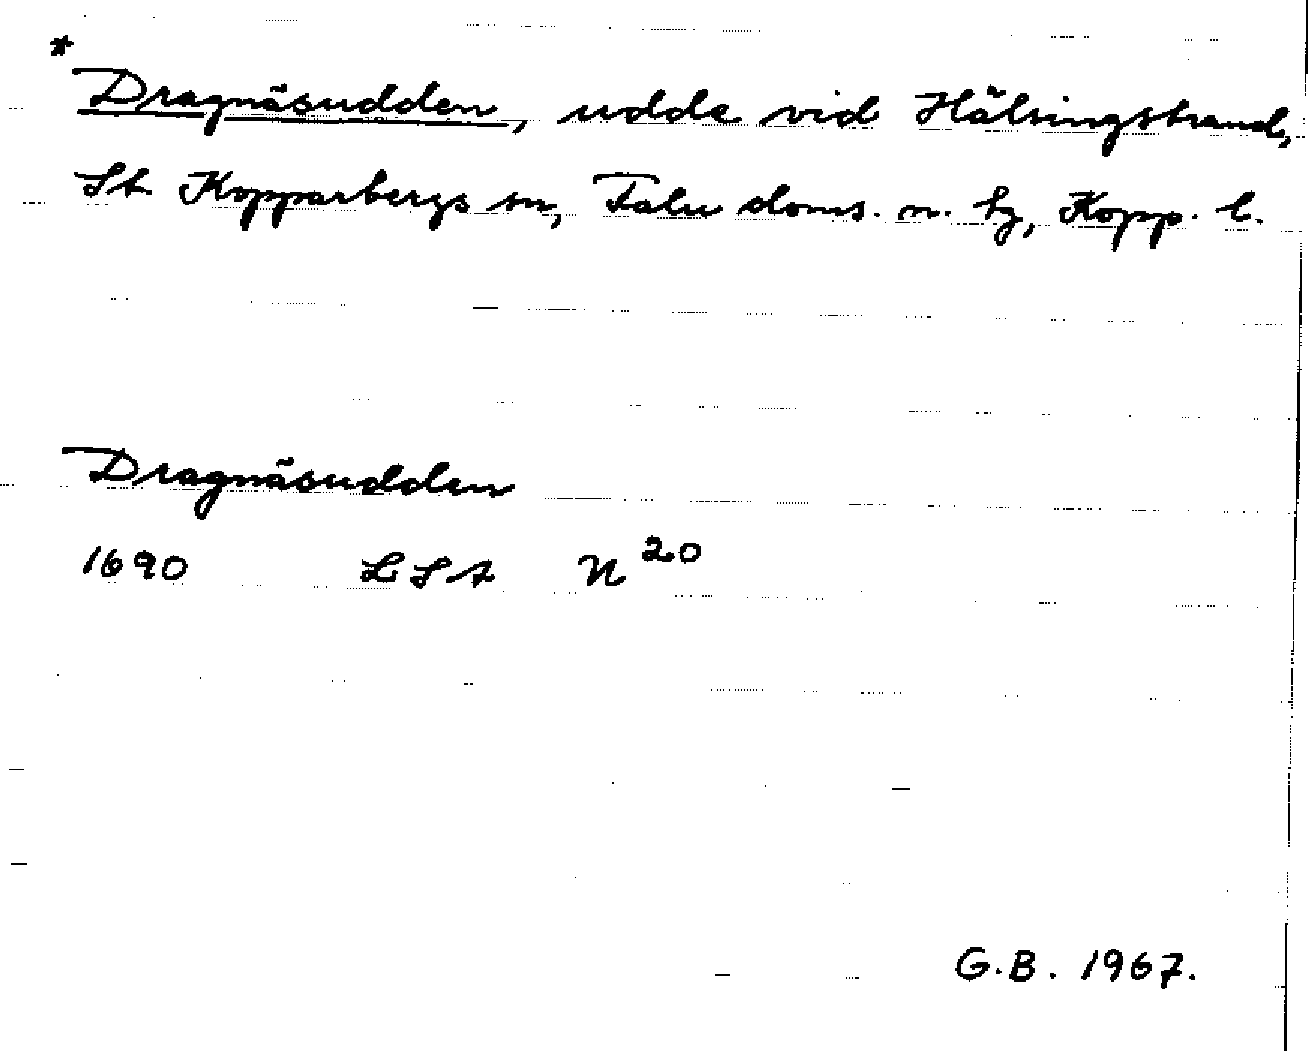 *
Dragnäsudden, udde vid Hälsingstrand,
St. Kopparbergs sn, Falu doms. n. hz, Kopp. l.
Dragnäsudden
1690 LSA N 20
G.B. 1967.